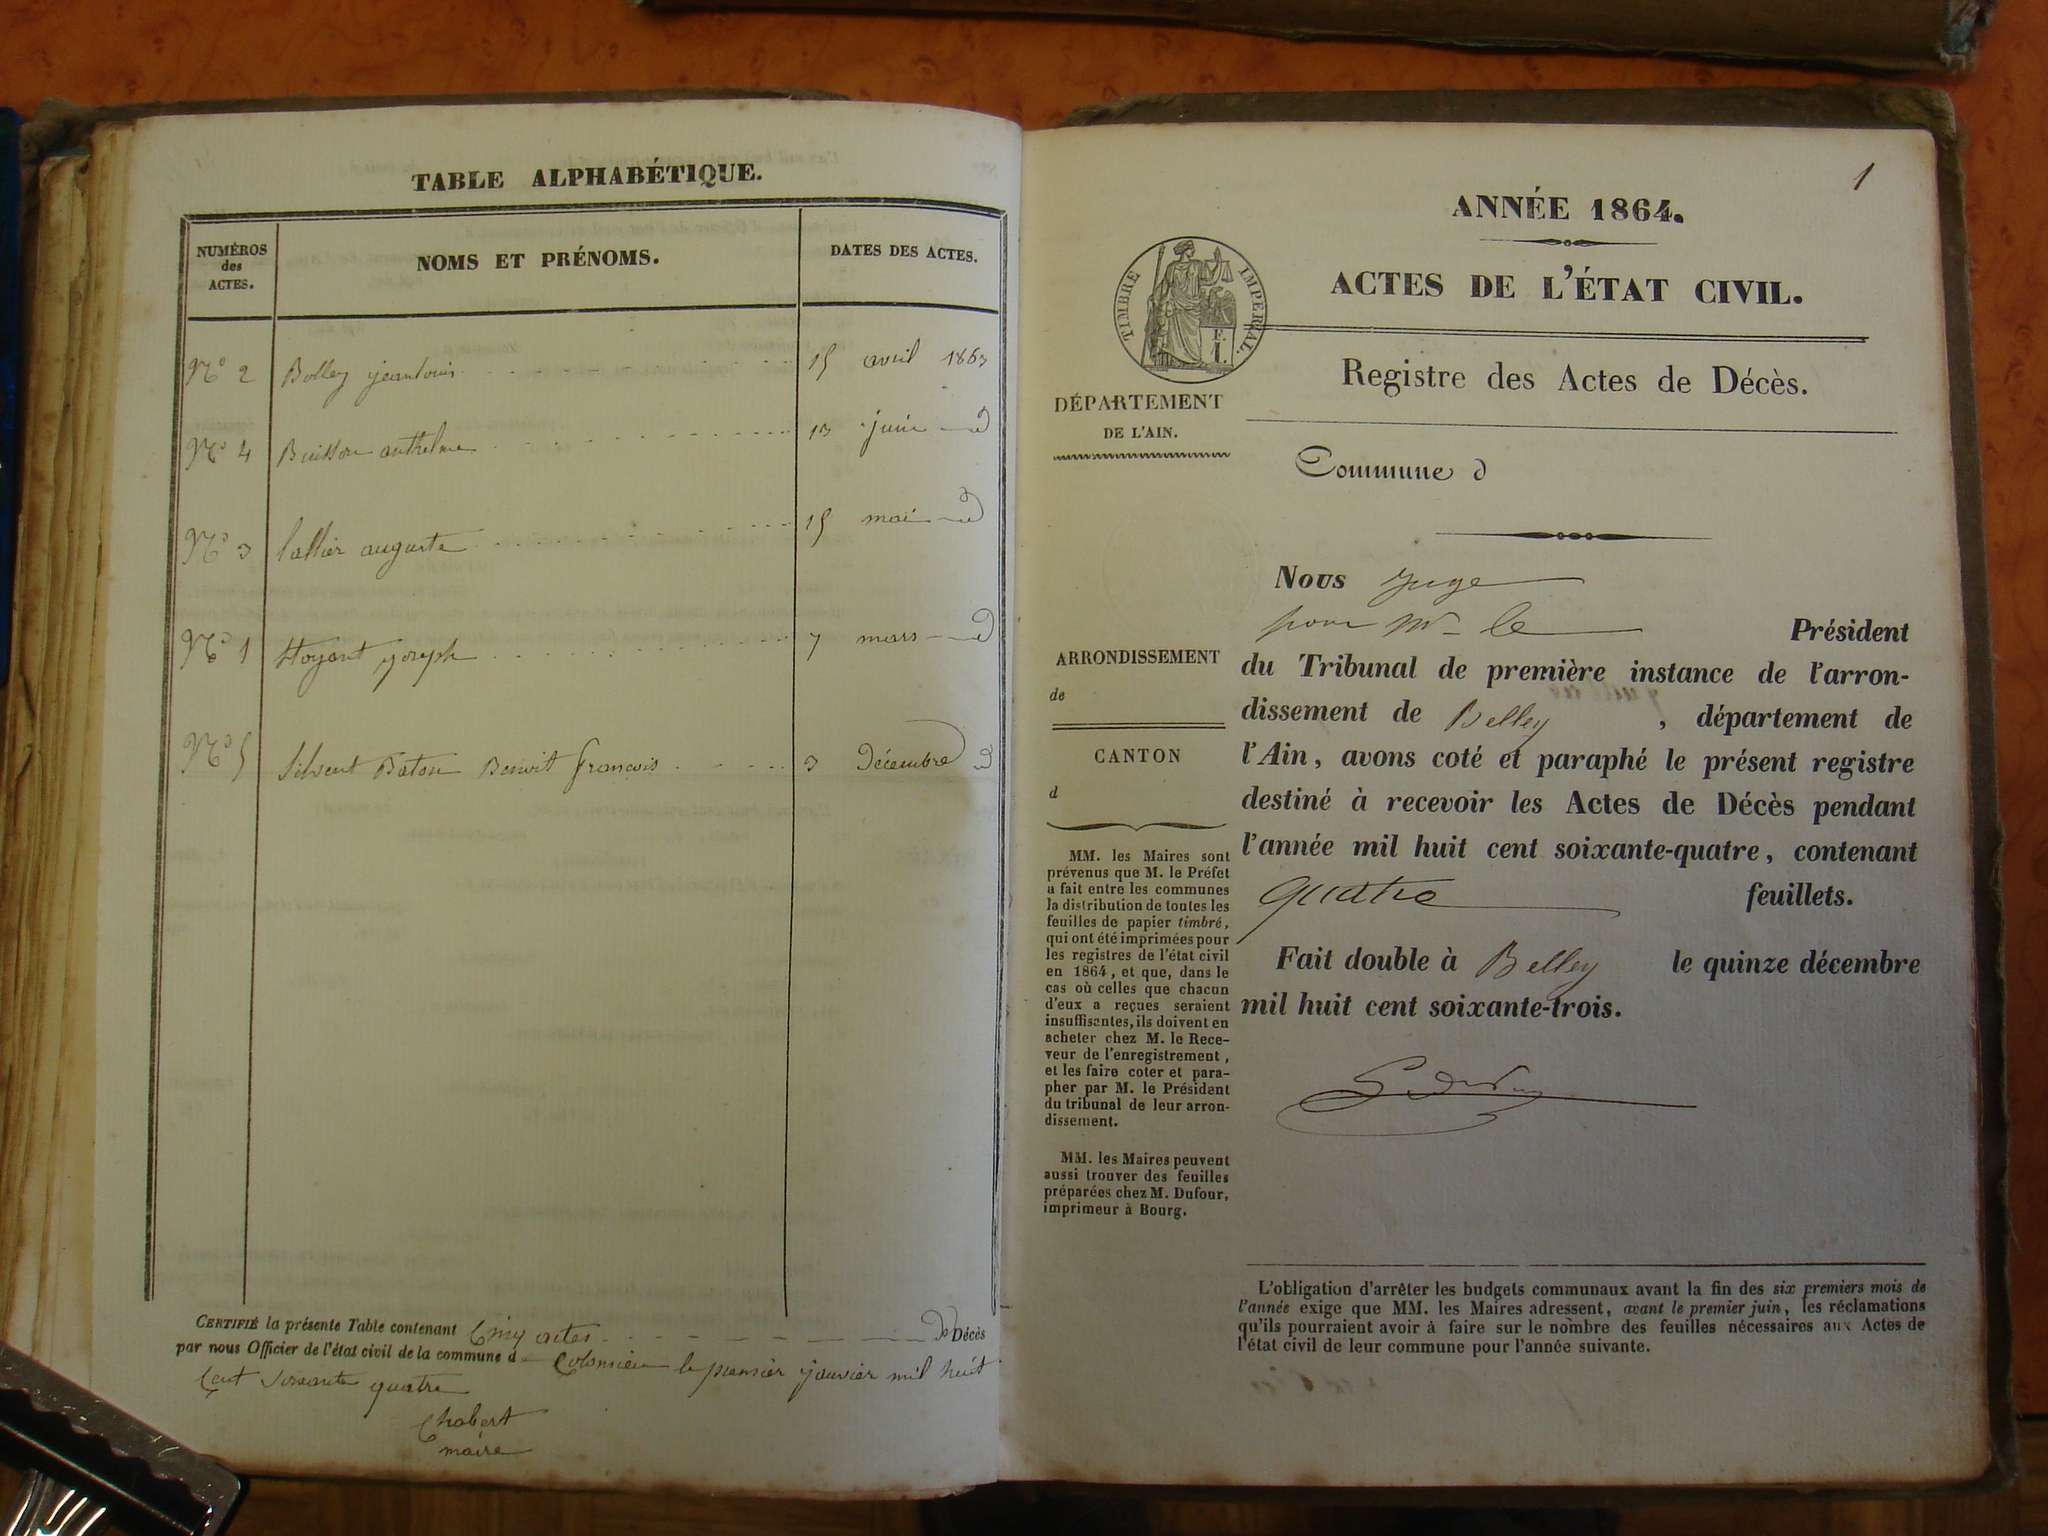 TABLE ALPHABÉTIQUE.
NUMÉROS
des
ACTES.
NOMS ET PRÉNOMS.
DATES DES ACTES.
N° 2 Bolley jeanlouis 15 avril 1863
N° 4 Buisson anthelme 13 juin d
N° 3 Callier auguste 15 mai d
N° 1 Hoyant joseph 7 mars d
N° 5 Silvent Baton Benoit françois 3 Décembre d
CERTIFIÉ la présente Table contenant Cinq actes de Décès
par nous Officier de l'état civil de la commune d le premier janvier mil huit
Cent soixante quatre
Chabert
maire
1
ANNÉE 1864.
ACTES DE L'ÉTAT CIVIL.
TIMBRE IMPÉRIAL.
Registre des Actes de Décès.
DÉPARTEMENT
DE L'AIN.
Commune d
Nous juge
pour Mr le Président
du Tribunal de première instance de l'arron-
dissement de Belley, département de
l'Ain, avons coté et paraphé le présent registre
destiné à recevoir les Actes de Décès pendant
l'année mil huit cent soixante-quatre, contenant
quatre feuillets.
Fait double à Belley le quinze décembre
mil huit cent soixante-trois.
ARRONDISSEMENT
de
CANTON
d
MM. les Maires sont
prévenus que M. le Préfet
a fait entre les communes
la distribution de toutes les
feuilles de papier timbré,
qui ont été imprimées pour
les registres de l'état civil
en 1864, et que, dans le
cas où celles que chacun
d'eux a reçues seraient
insuffisantes, ils doivent en
acheter chez M. le Rece-
veur de l'enregistrement,
et les faire coter et para-
pher par M. le Président
du tribunal de leur arron-
dissement.
MM. les Maires peuvent
aussi trouver des feuilles
préparées chez M. Dufour,
imprimeur à Bourg.
L'obligation d'arrêter les budgets communaux avant la fin des six premiers mois de
l'année exige que MM. les Maires adressent, avant le premier juin, les réclamations
qu'ils pourraient avoir à faire sur le nombre des feuilles nécessaires aux Actes de
l'état civil de leur commune pour l'année suivante.